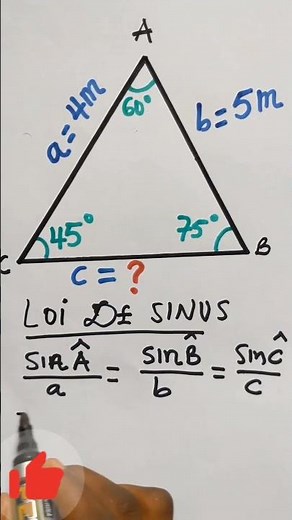 A
60°
a = 4m
b = 5m
45°
75°
C
B
c = ?
LOI DE SINUS
sin Â/a = sin B̂/b = sin Ĉ/c